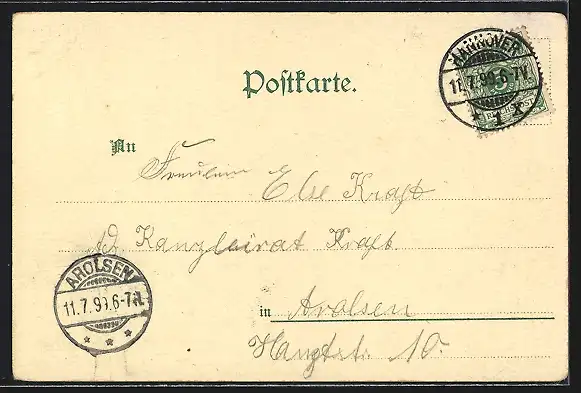 Postkarte.
HANNOVER
11.7.99.6-7V.
* 1 *
REICHSPOST
An
Fräulein Else Kraft
Kanzleirat Kraft
AROLSEN
11.7.99.6-7N.
* * *
in Arolsen
Hauptstr. 10.